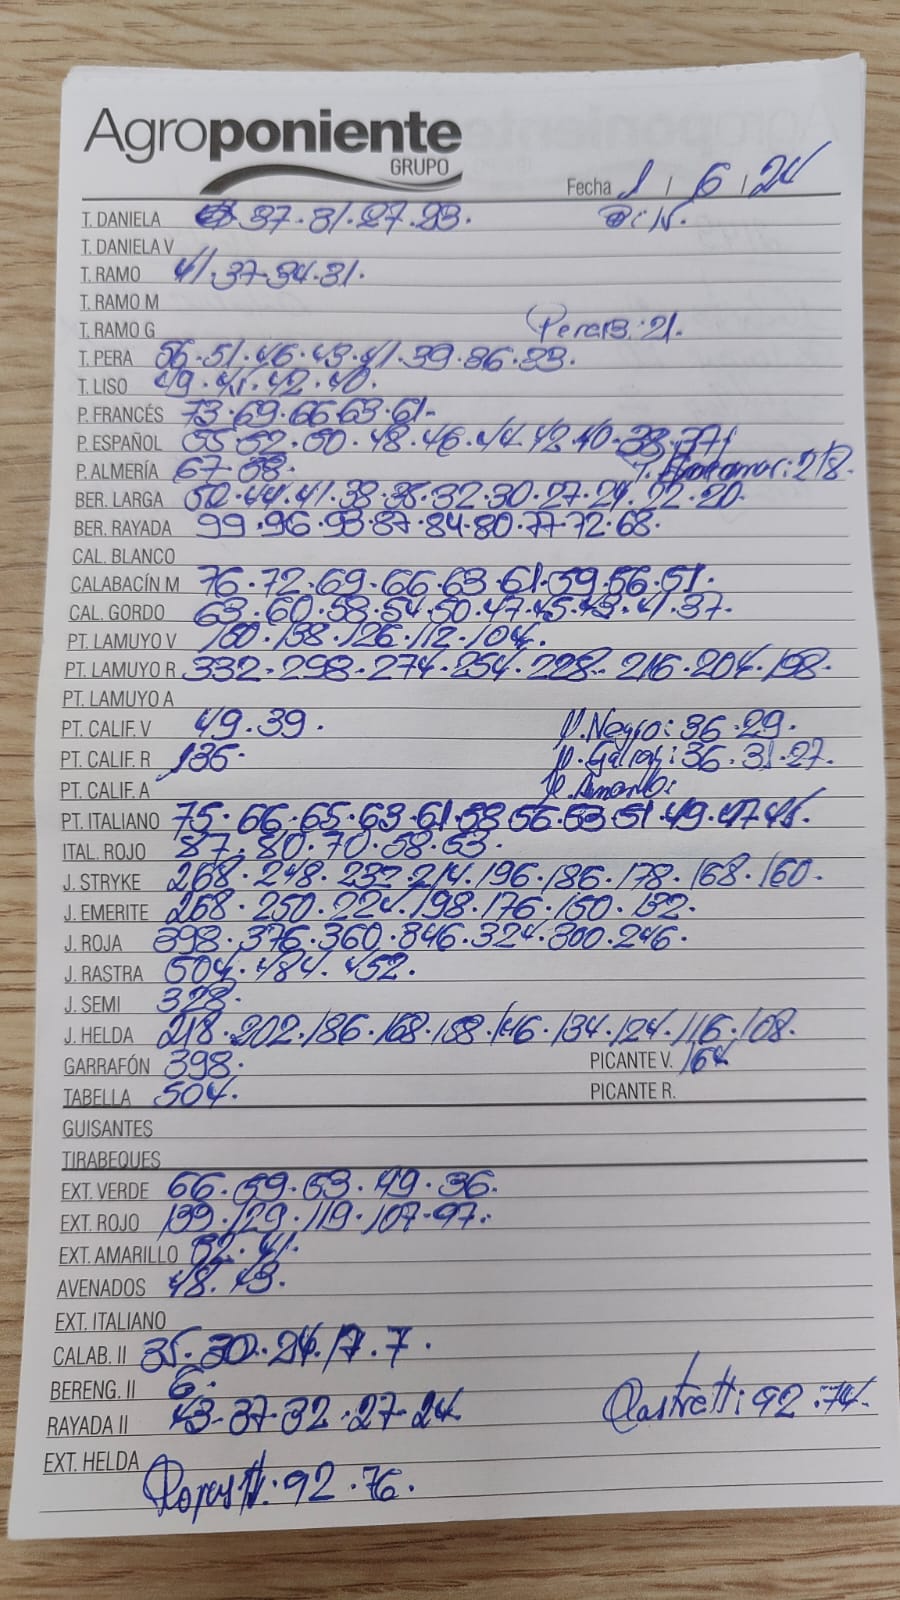 Agroponiente
GRUPO
Fecha 1 / 6 / 24
T. DANIELA 37. 31. 27. 23.
T. DANIELA V
T. RAMO 41. 37. 34. 31.
T. RAMO M
T. RAMO G Pera B: 21.
T. PERA 56. 51. 46. 43. 41. 39. 36. 33.
T. LISO 49. 45. 42. 40.
P. FRANCÉS 73. 69. 66. 63. 61.
P. ESPAÑOL 55. 52. 50. 48. 46. 44. 42. 40. 38. 37.
P. ALMERÍA 67. 58. 218.
BER. LARGA 50. 44. 41. 38. 35. 32. 30. 27. 24. 22. 20.
BER. RAYADA 99. 96. 93. 87. 84. 80. 77. 72. 68.
CAL. BLANCO
CALABACÍN M 76. 72. 69. 66. 63. 61. 59. 56. 51.
CAL. GORDO 63. 60. 58. 54. 50. 47. 45. 43. 41. 37.
PT. LAMUYO V 160. 138. 126. 112. 104.
PT. LAMUYO R 332. 298. 274. 254. 228. 216. 204. 198.
PT. LAMUYO A
PT. CALIF. V 49. 39. P. Negro: 36. 29.
PT. CALIF. R 136. 36. 31. 27.
PT. CALIF. A
PT. ITALIANO 75. 66. 65. 63. 61. 58. 56. 53. 51. 49. 47. 45.
ITAL. ROJO 87. 80. 70. 58. 53.
J. STRYKE 268. 248. 232. 214. 196. 186. 178. 168. 160.
J. EMERITE 268. 250. 224. 198. 176. 150. 132.
J. ROJA 398. 376. 360. 346. 324. 300. 246.
J. RASTRA 504. 484. 452.
J. SEMI 328.
J. HELDA 218. 202. 186. 168. 158. 146. 134. 124. 116. 108.
GARRAFÓN 398. PICANTE V. 164
TABELLA 504. PICANTE R.
GUISANTES
TIRABEQUES
EXT. VERDE 66. 59. 53. 49. 36.
EXT. ROJO 139. 129. 119. 107. 97.
EXT. AMARILLO 52. 41.
AVENADOS 48. 43.
EXT. ITALIANO
CALAB. II 35. 30. 24. 17. 7.
BERENG. II 6.
RAYADA II 43. 37. 32. 27. 24. Rastra II: 92. 74.
EXT. HELDA
Rojas II: 92. 76.